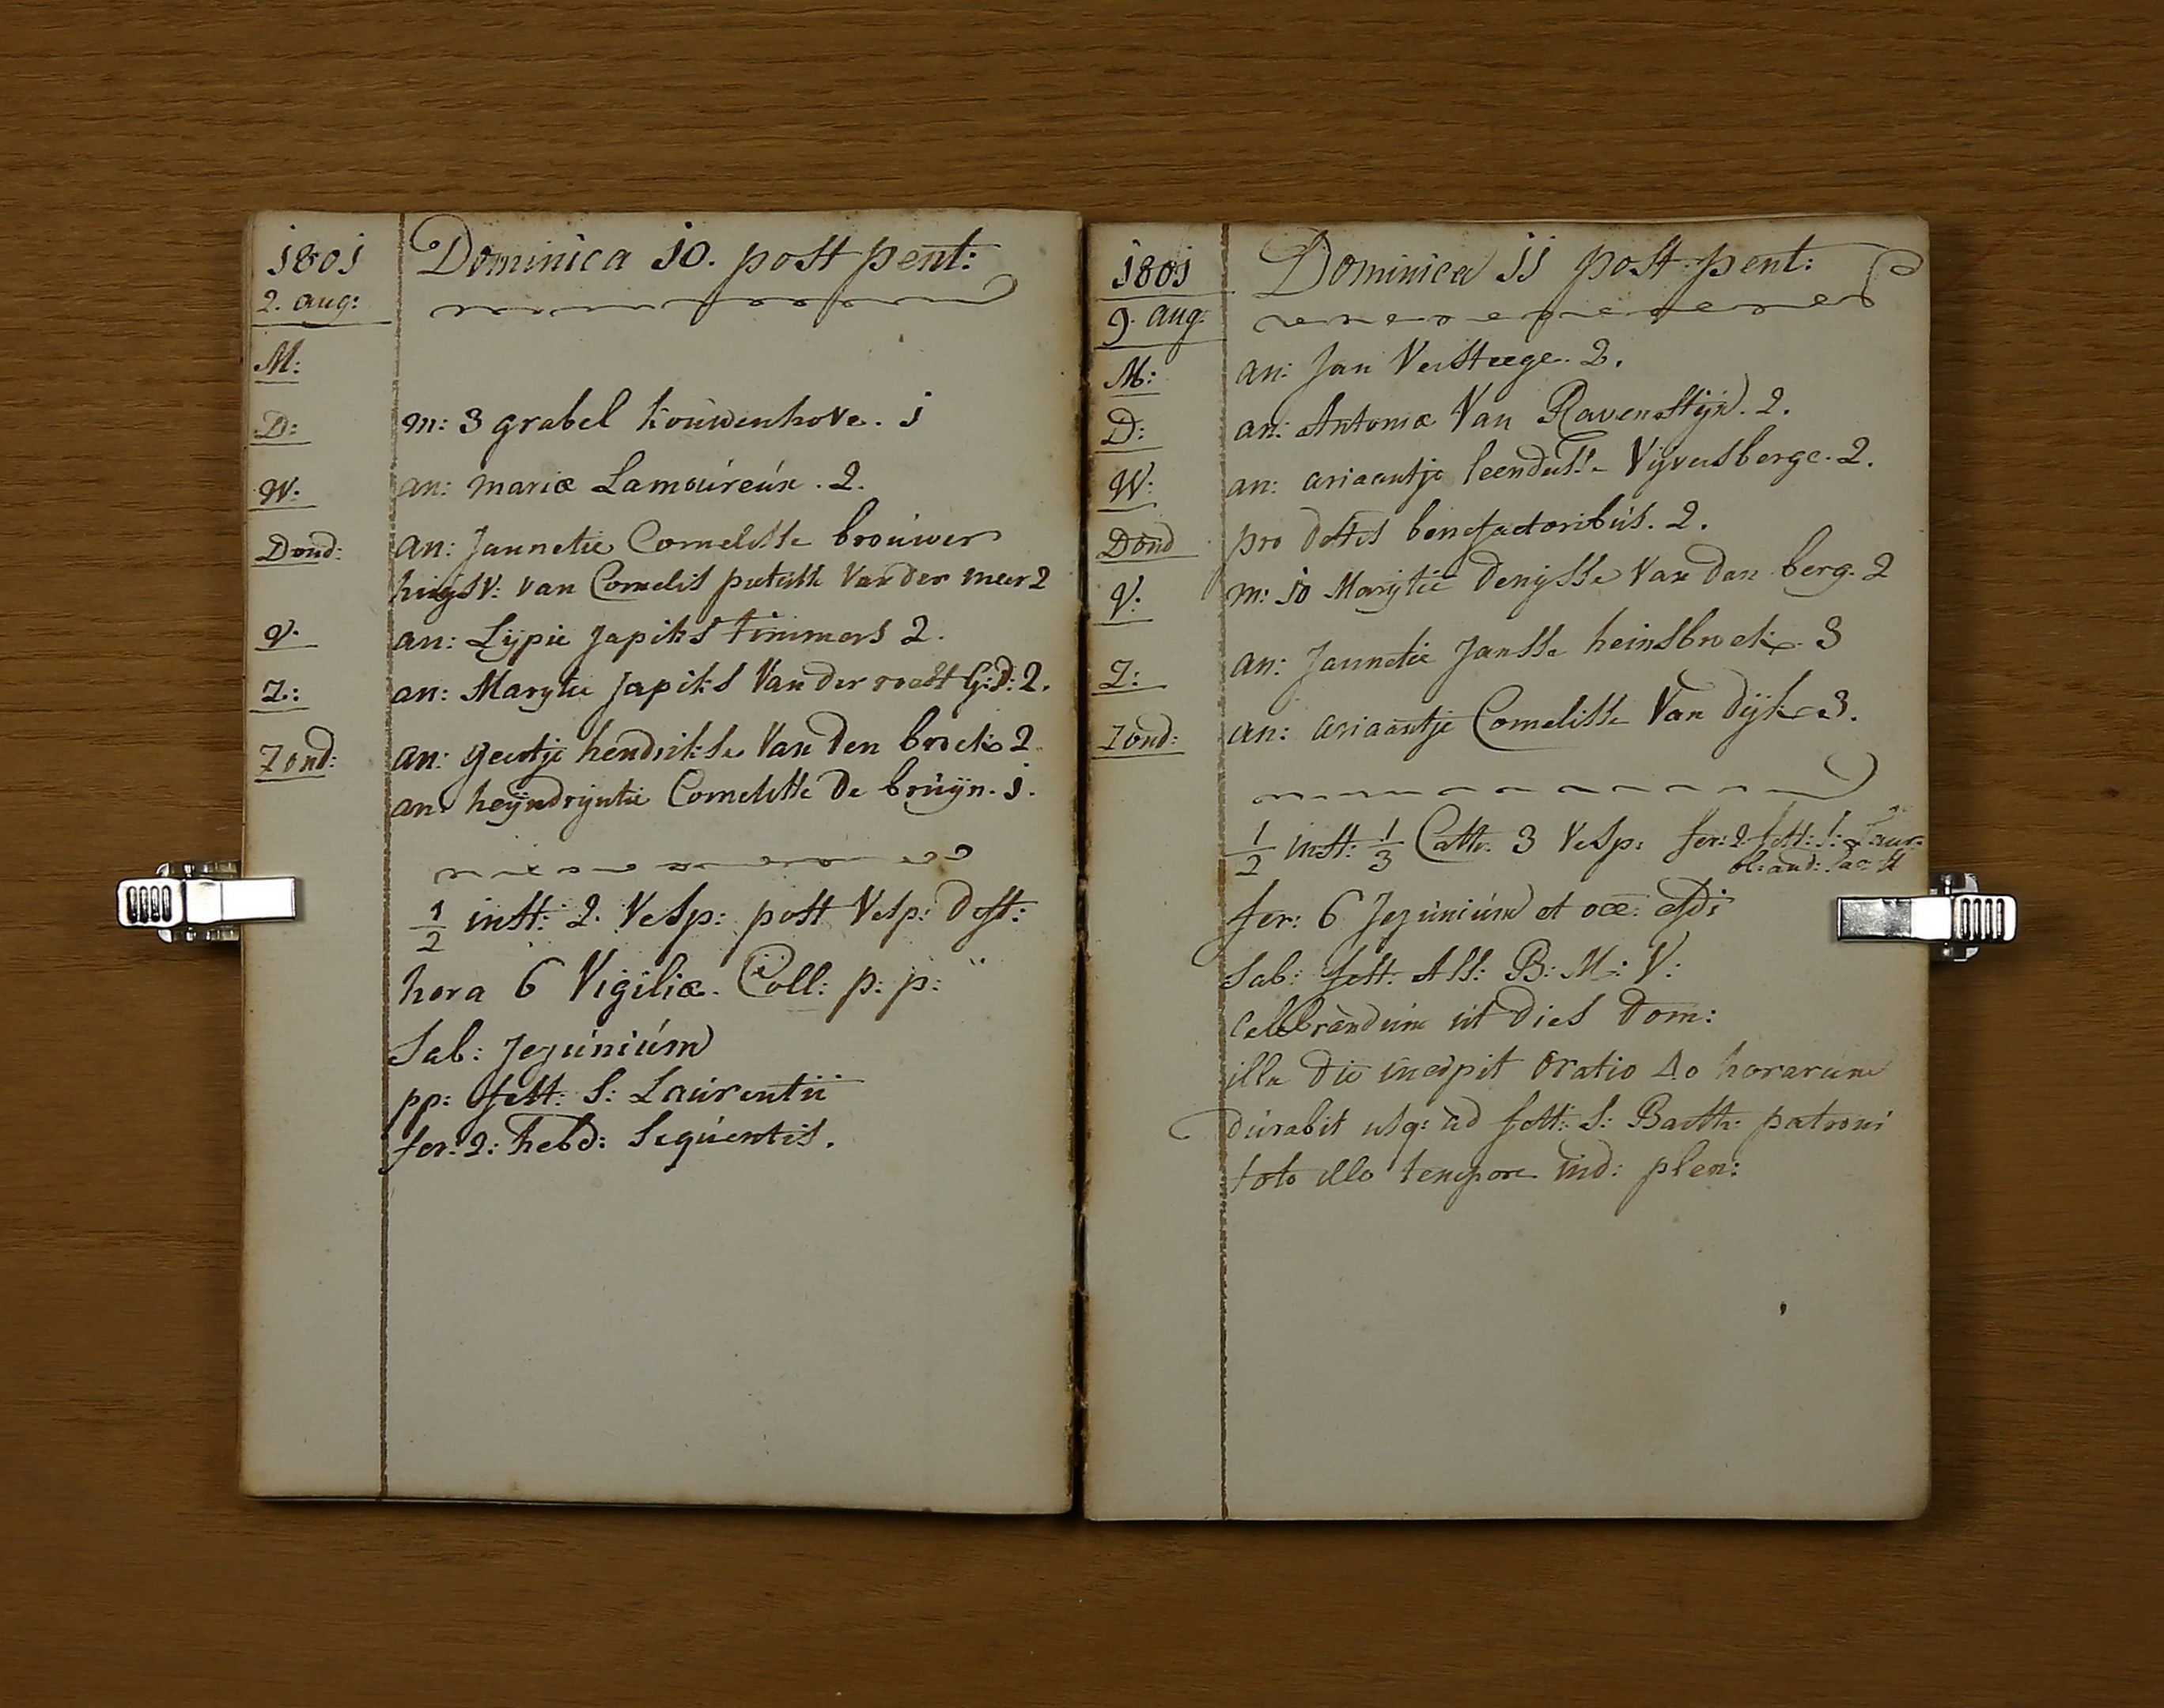 1801
2. aug:
Dominica 10. post pent:
M:
D: m: 3 grabel kouwenhove. 1
W: an: mariæ Lamoureux. 2.
Dond: an: Jannetie Cornelisse brouwer
huysv: van Cornelis pieterse Van der meer 2
V. an: Lijpie Japiks timmers 2.
Z: an: Marytie Japiks Van der G:D: 2.
Zond: an: geertje hendrikse Van den broek 2
an: heijndrijntie Cornelisse De bruijn. 1.
1/2 inst: 2. Vesp: post Vesp: Deft:
hora 6 Vigiliæ. Coll: p: p:
Sab: Jejunium
pp: fest: S: Laurentii
fer: 2: hebd: Sequentis.
1801
9. aug:
Dominica 11 post pent:
M: an: Jan Versteege. 2.
D: an: Antoniæ Van Ravenstijn. 2.
W: an: ariaantje leendertse Vijversberge. 2.
Dond pro deftis benefactoribus. 2.
V. m: 10 Marijtie Denijsse Van den berg. 2
Z: an: Jannetie Jansse heinsbroek. 3
Zond: an: ariaantje Cornelisse Van Dijk 3.
1/2 inst: 1/3 Cath. 3 Vesp: fer: 2 fest: S: Laur:
fer: 6 Jejunium et
Sab: fest: Ass: B: M: V:
Celebrandum ut dies Dom:
illa die incipit oratio 40 horarum
durabit usq: ad fest: S: Barth: patroni
toto illo tempore ind: plen: